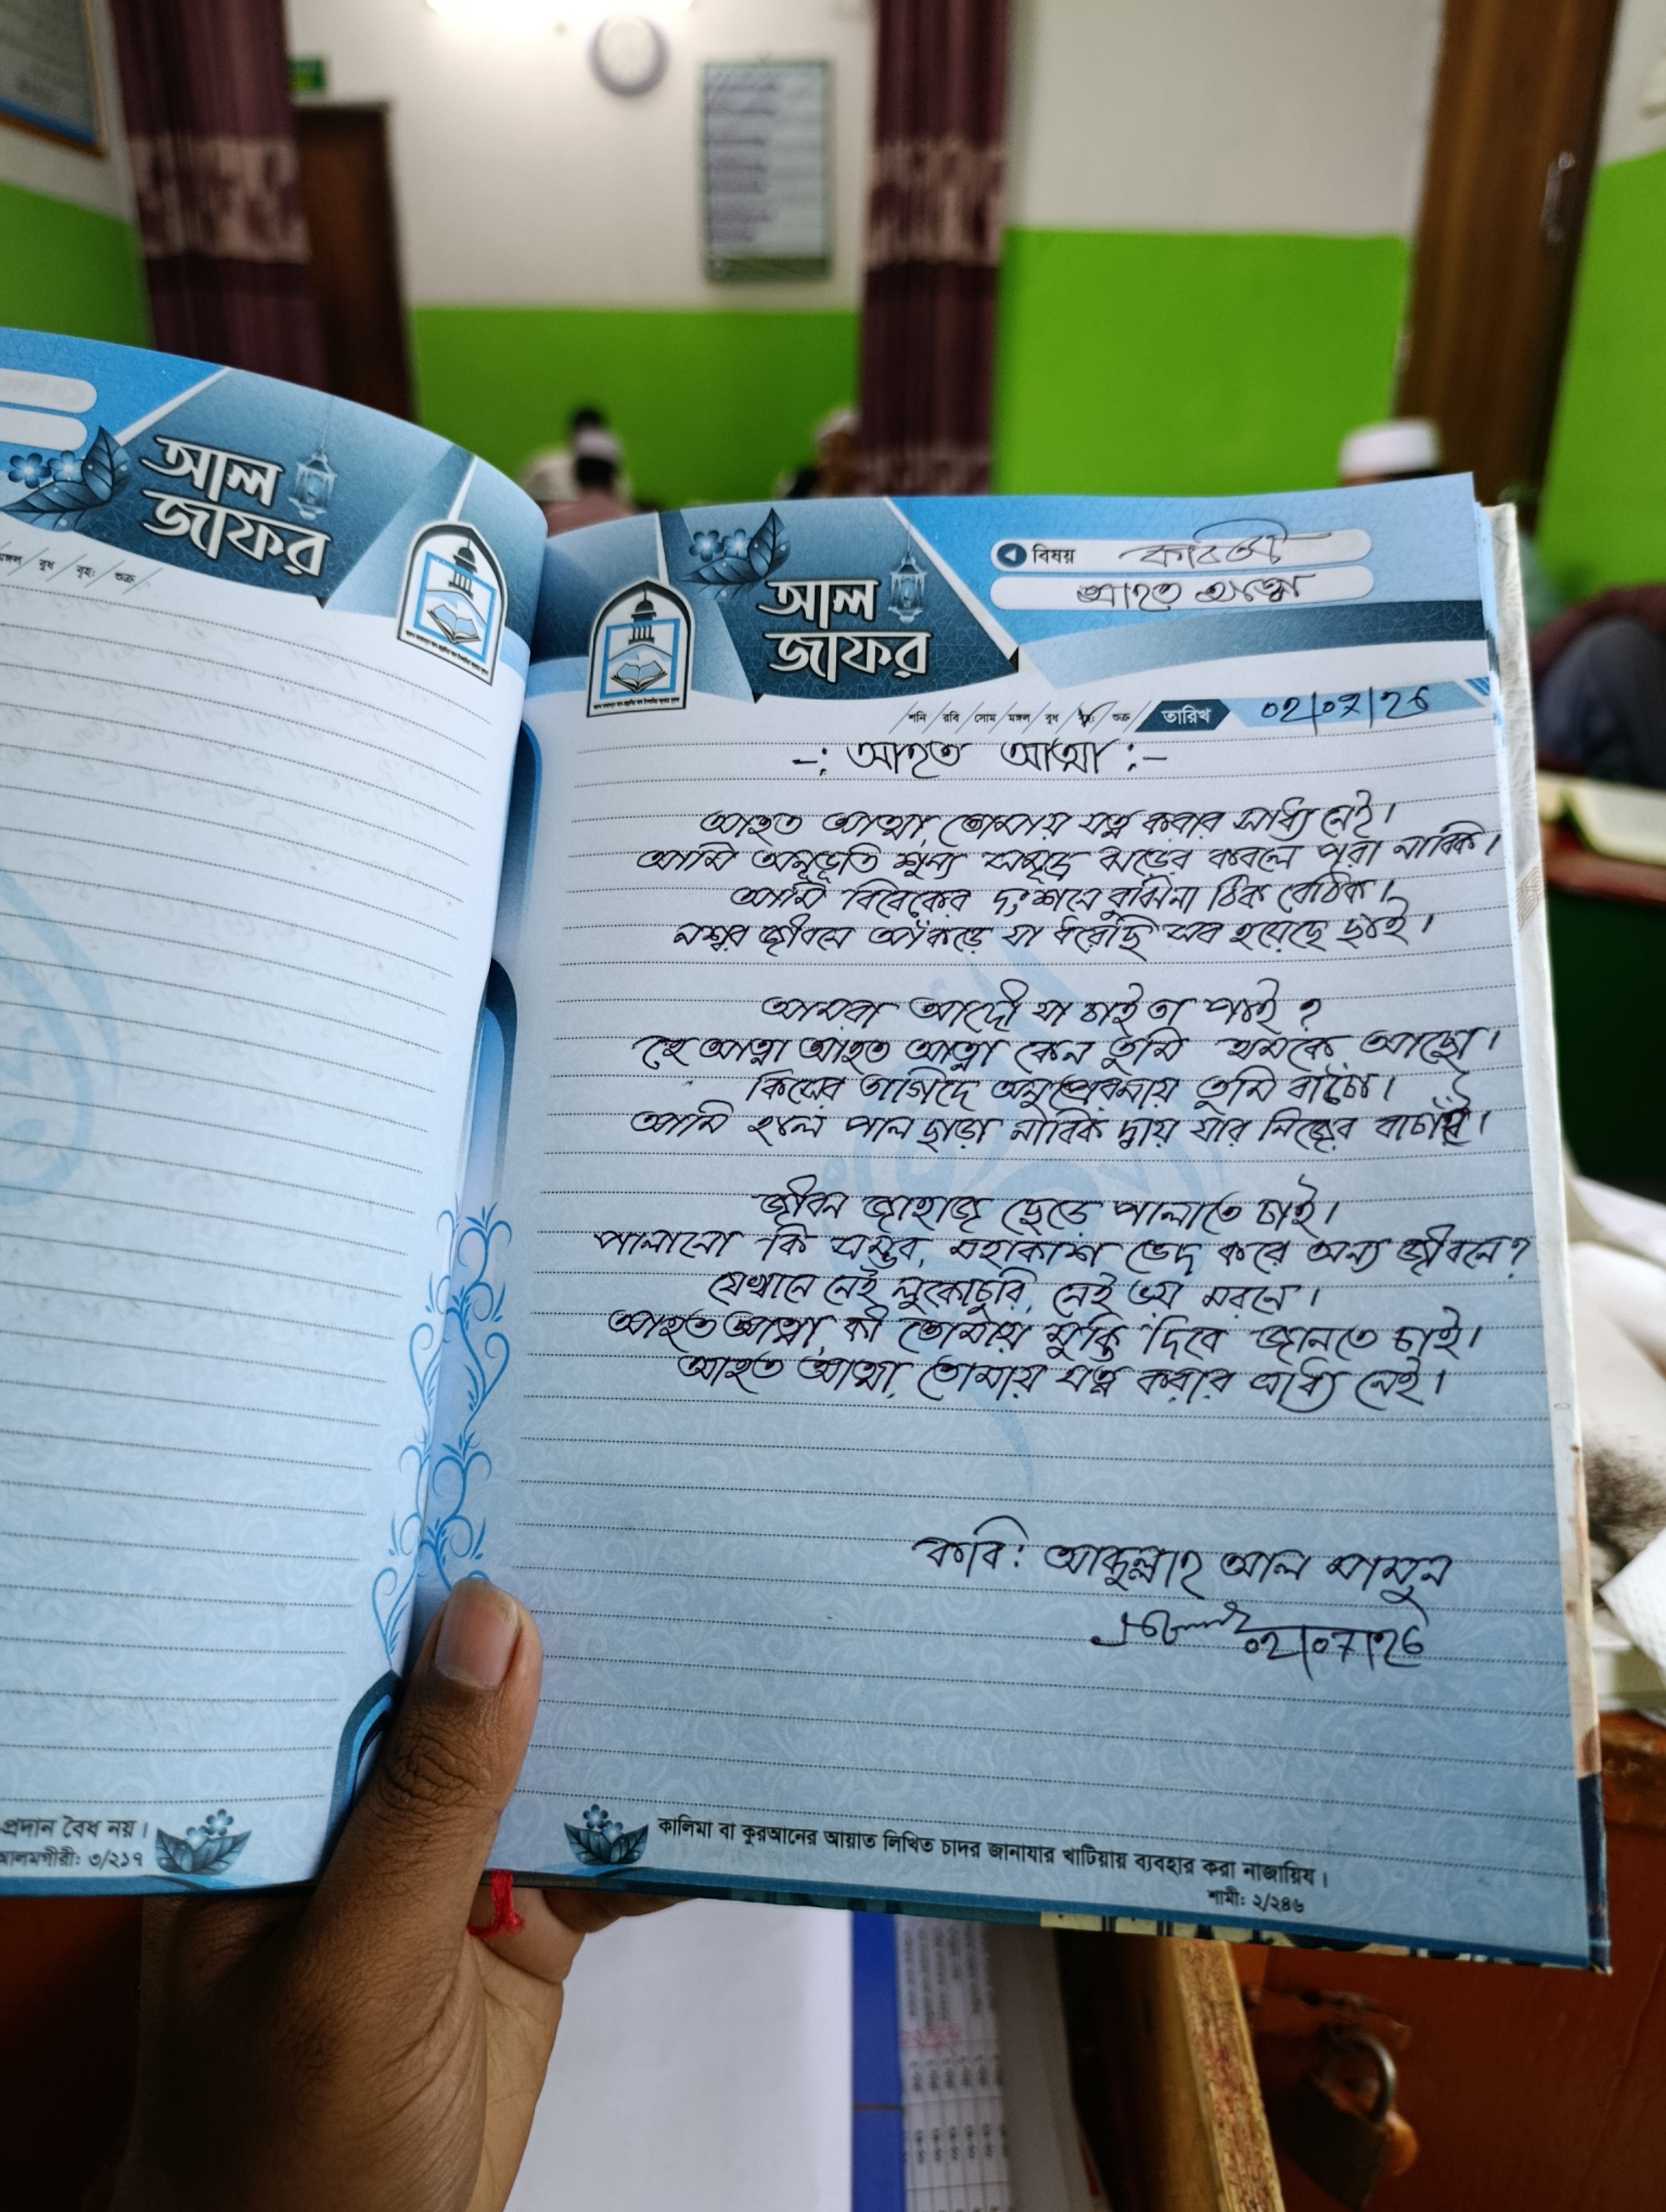 আল
জাফর
মঙ্গল / বুধ / বৃহঃ / শুক্র
প্রদান বৈধ নয়।
আলমগীরী: ৩/২১৭
আল
জাফর
বিষয় কবিতা
আহত আত্মা
শনি / রবি / সোম / মঙ্গল / বুধ / বৃহঃ / শুক্র
তারিখ ০২/০৭/২৬
-: আহত আত্মা :-
আহত আত্মা, তোমায় যত্ন করার সাধ্যি নেই।
আমি অনুভূতি শুন্য সমুদ্রে ঝড়ের কবলে পরা নাবিক।
আমি বিবেকের দংশনে বুঝিনা ঠিক বেঠিক।
নশ্বর জীবনে আঁকড়ে যা ধরেছি সব হয়েছে ছাই।
আমরা আদৌ যা চাই তা পাই?
হে আত্মা আহত আত্মা কেন তুমি থমকে আছো।
কিসের তাগিদে অনুপ্রেরনায় তুমি বাঁচো।
আমি হাল পাল ছাড়া নাবিক দ্বায় যার নিজের
জীবন জাহাজ ছেড়ে পালাতে চাই।
পালানো কি সম্ভব, মহাকাশ ভেদ করে অন্য জীবনে?
যেখানে নেই লুকোচুরি, নেই ভয় মরনে।
আহত আত্মা, কী তোমায় মুক্তি দিবে জানতে চাই।
আহত আত্মা, তোমায় যত্ন করার সাধ্যি নেই।
কবি: আব্দুল্লাহ আল মামুন
০২/০৭/২৬
কালিমা বা কুরআনের আয়াত লিখিত চাদর জানাযার খাটিয়ায় ব্যবহার করা নাজায়িয।
শামী: ২/২৪৬